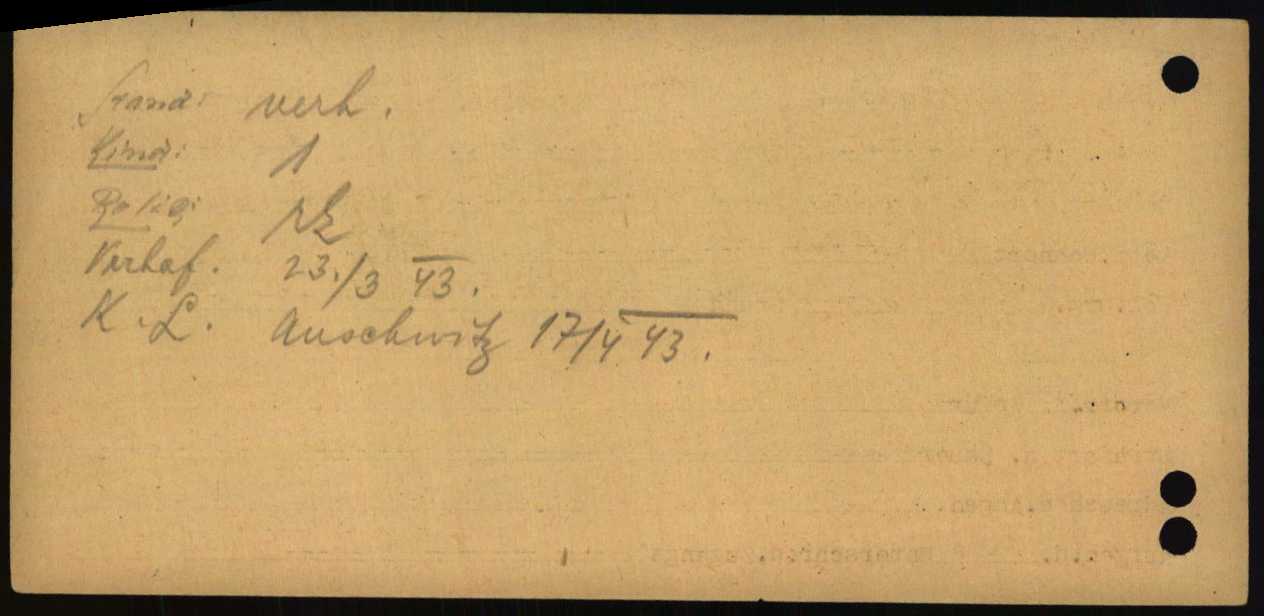 Stand: verh.
Kind: 1
Relig: rk
Verhaf. 23./3 43.
K.L. Auschwitz 17/4 43.